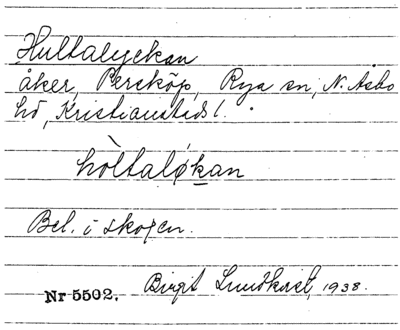 Hultalyckan
åker, Perstöp, Rya sn, N. Åsbo
hd, Kristianstads l.
hòltaløkan
Bel. i skogen.
Nr 5502. Birgit Lundkvist, 1938.